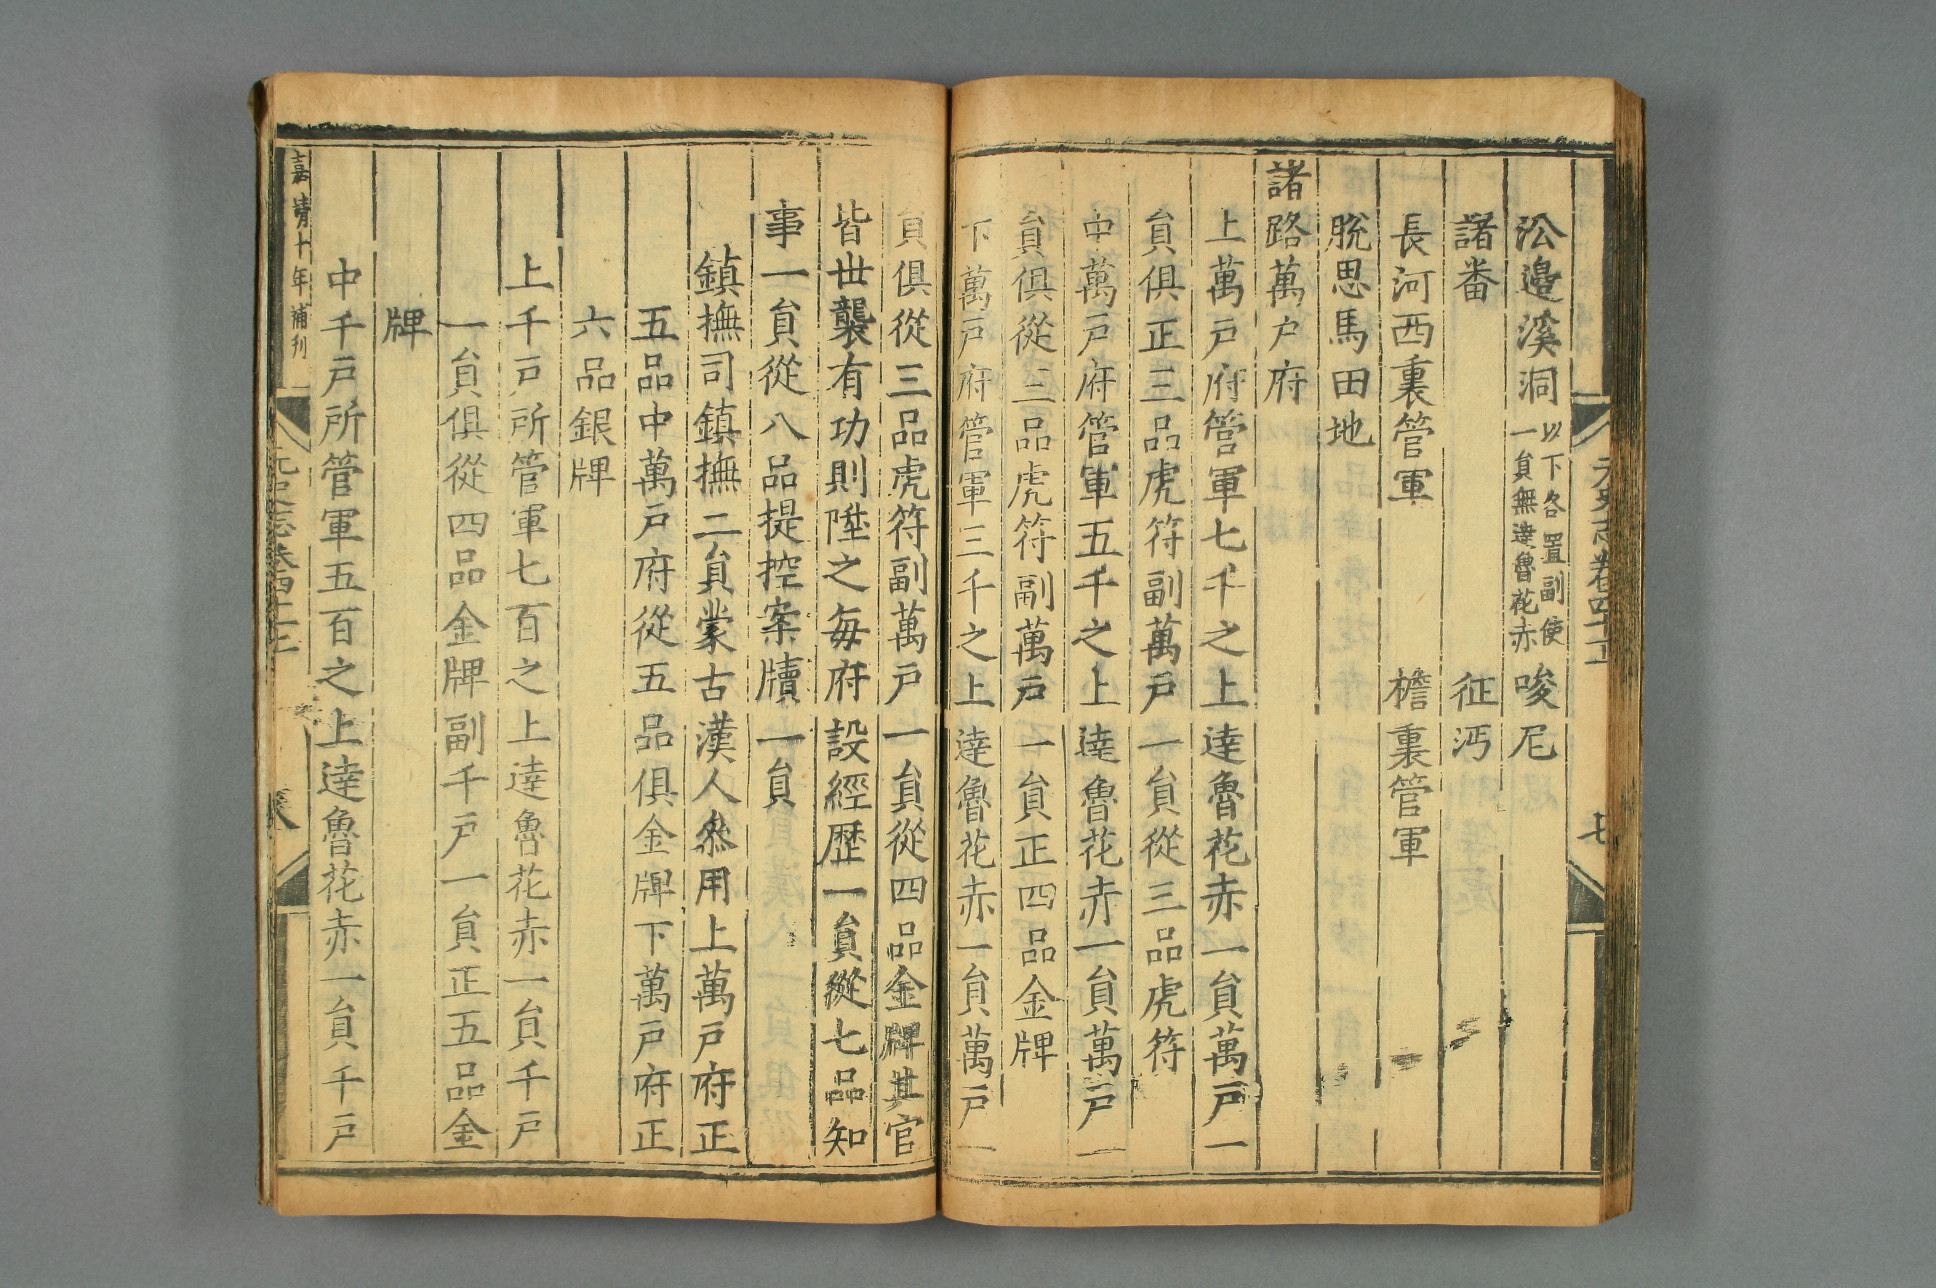 元史志卷四十一
七
沿邊溪洞
以下各置副使
一負無達魯花赤
唆尼
諸番　征沔
長河西裏管軍　檐裏管軍
脫思馬田地
諸路萬户府
上萬戸府管軍七千之上達魯花赤一負萬戸一
負俱正三品虎符副萬戸一負從三品虎符
中萬戸府管軍五千之上達魯花赤一負萬戸一
負俱從三品虎符副萬戸一負正四品金牌
下萬戸府管軍三千之上達魯花赤一負萬戸一
負俱從三品虎符副萬戸一負從四品金牌其官
皆世襲有功則陞之每府設經歷一負從七品知
事一負從八品提控案牘一負
鎮撫司鎮撫二負蒙古漢人叅用上萬戸府正
五品中萬戸府從五品俱金牌下萬戸府正
六品銀牌
上千戸所管軍七百之上達魯花赤一負千戸
一負俱從四品金牌副千戸一負正五品金
牌
中千戸所管軍五百之上達魯花赤一負千戸
嘉靖十年補刊